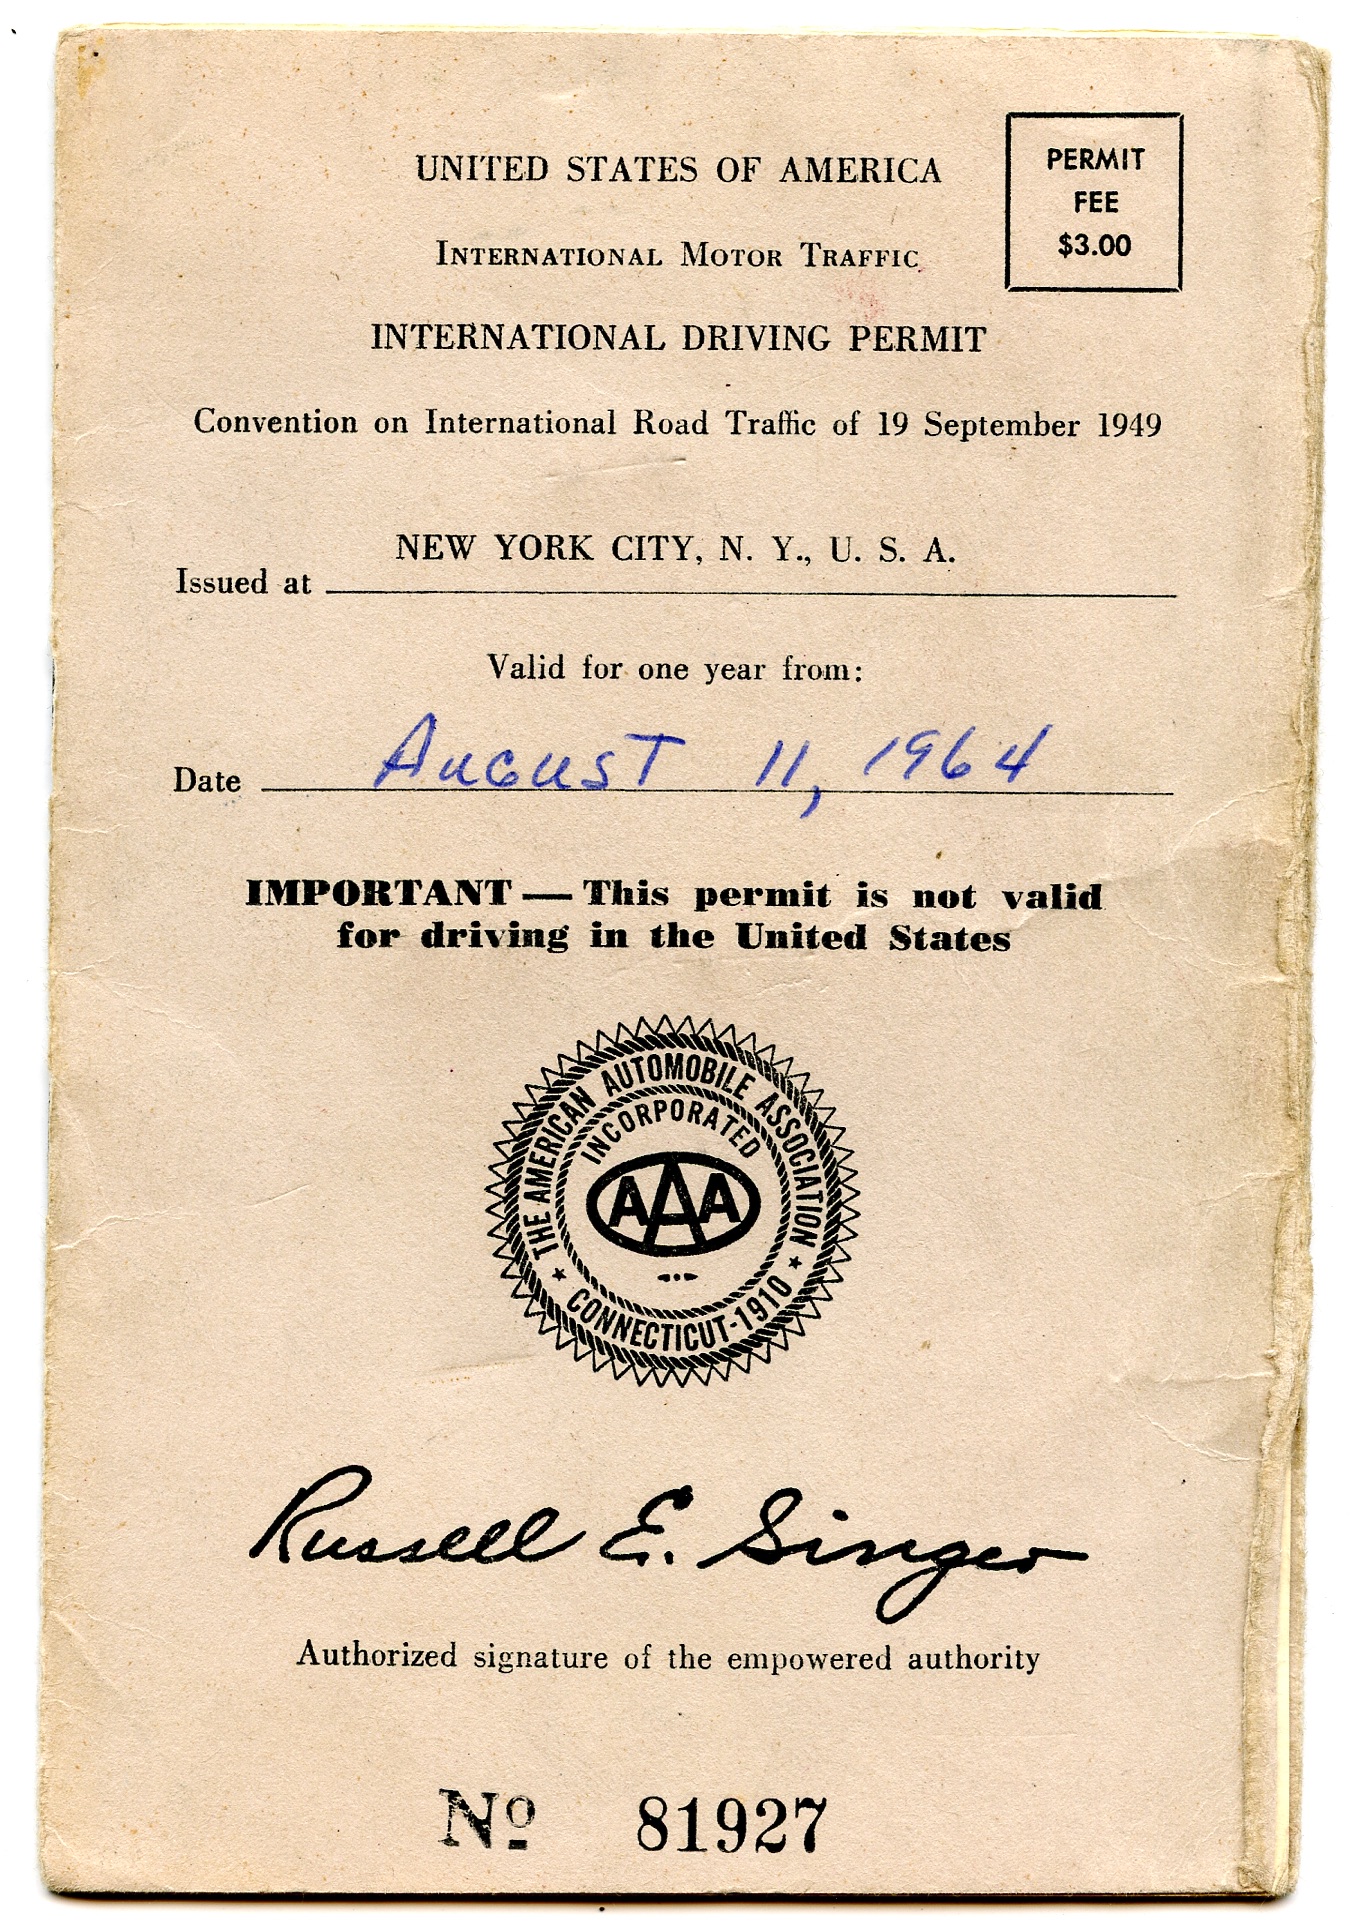 UNITED STATES OF AMERICA
PERMIT
FEE
$3.00
INTERNATIONAL MOTOR TRAFFIC
INTERNATIONAL DRIVING PERMIT
Convention on International Road Traffic of 19 September 1949
NEW YORK CITY, N. Y., U. S. A.
Issued at
Valid for one year from:
Date August 11, 1964
IMPORTANT — This permit is not valid
for driving in the United States
THE AMERICAN AUTOMOBILE ASSOCIATION
INCORPORATED
AAA
★ CONNECTICUT-1910 ★
Russell E. Singer
Authorized signature of the empowered authority
Nº 81927